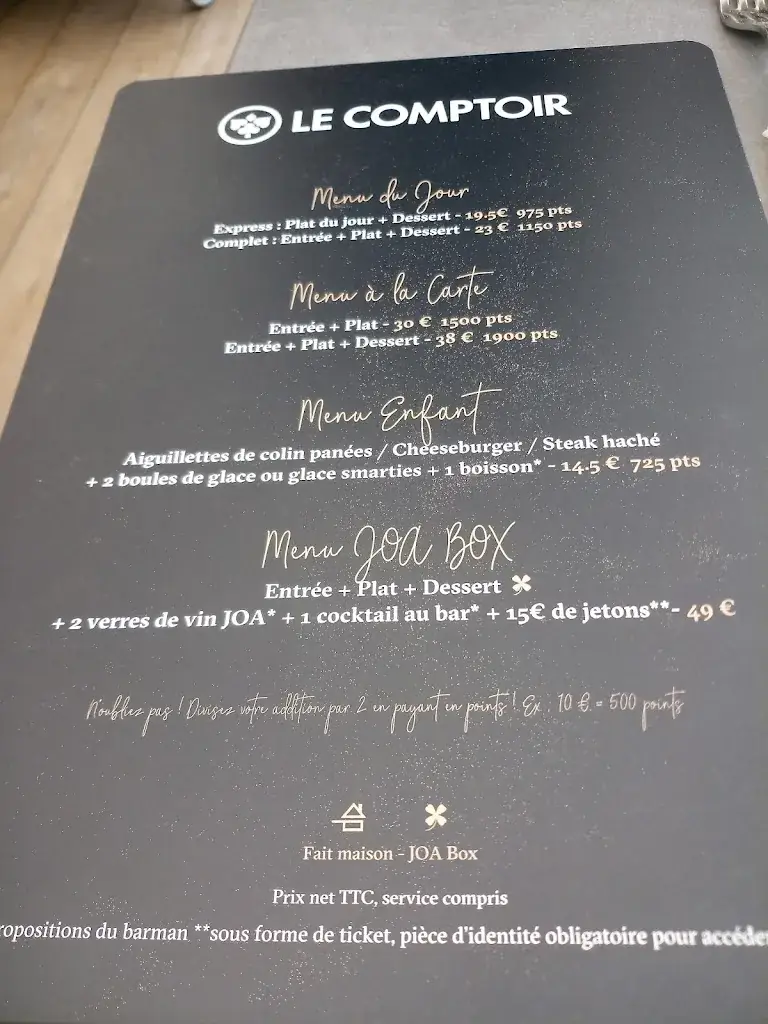 LE COMPTOIR
Menu du Jour
Express : Plat du jour + Dessert - 19.5€ 975 pts
Complet : Entrée + Plat + Dessert - 23 € 1150 pts
Menu à la Carte
Entrée + Plat - 30 € 1500 pts
Entrée + Plat + Dessert - 38 € 1900 pts
Menu Enfant
Aiguillettes de colin panées / Cheeseburger / Steak haché
+ 2 boules de glace ou glace smarties + 1 boisson* - 14.5 € 725 pts
Menu JOA BOX
Entrée + Plat + Dessert
+ 2 verres de vin JOA* + 1 cocktail au bar* + 15€ de jetons**- 49 €
N'oubliez pas ! Divisez votre addition par 2 en payant en points ! Ex : 10 € = 500 points
Fait maison - JOA Box
Prix net TTC, service compris
ropositions du barman **sous forme de ticket, pièce d'identité obligatoire pour accéde